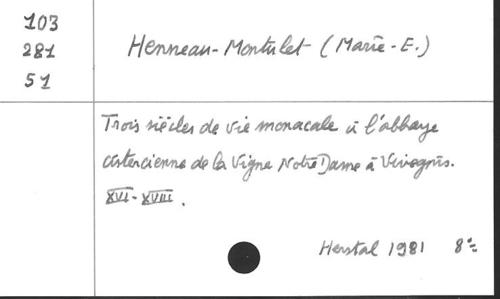 103
281
51
Henneau-Montulet (Marie-E.)
Trois siècles de vie monacale à l'abbaye
cistercienne de la Vigne Notre Dame à Vivegnis.
XVI-XVIII.
Herstal 1981 8°